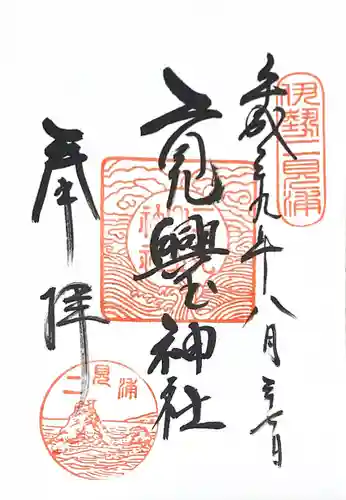 伊勢二見浦
平成二九年八月二七日
二見興玉神社
奉拝
二見浦